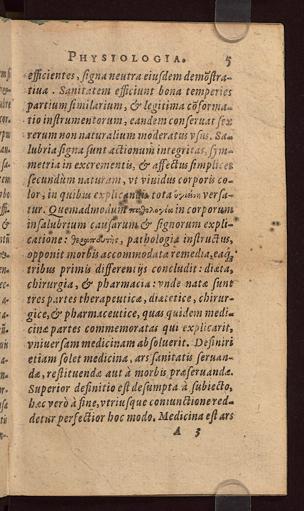 PHYSIOLOGIA. 5
efficientes, signa neutra eiusdem demōstra-
tiua. Sanitatem efficiunt bona temperies
partium similarium, & legitima cōforma-
tio instrumentorum, eandem conseruat sex
rerum non naturalium moderatus vsus. Sa-
lubria signa sunt actionum integritas, sym-
metria in excrementis, & affectus simplices
secundùm naturam, vt viuidus corporis co-
lor, in quibus explicandis tota versa-
tur. Quemadmodum in corporum
insalubrium causarum & signorum expli-
catione: pathologia instructus,
opponit morbis accommodata remedia, eaq́;
tribus primis differentijs concludit: diæta,
chirurgia, & pharmacia: vnde natæ sunt
tres partes therapeuticæ, diætetice, chirur-
gice, & pharmaceutice, quas quidem medi-
cinæ partes commemoratas qui explicarit,
vniuersam medicinam absoluerit. Definiri
etiam solet medicina, ars sanitatis seruan-
dæ, restituendæ aut à morbis præseruandæ.
Superior definitio est desumpta à subiecto,
hæc verò à fine, vtriusque coniunctione red-
detur perfectior hoc modo. Medicina est ars
A 3